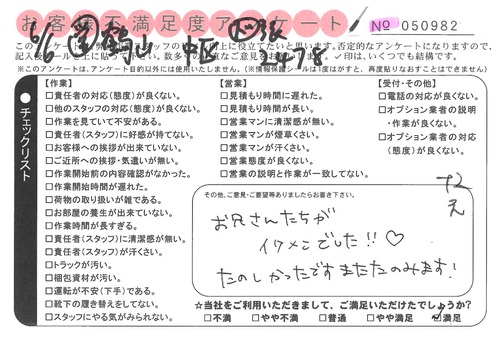 お客様不満足度アンケート
No 050982
※このアンケートは、アンケート目的以外には使用いたしません。(情報保護シールは1度はがすと、再度貼りなおすことはできません)
チェックリスト
【作業】
□責任者の対応(態度)が良くない。
□他のスタッフの対応(態度)が良くない。
□作業を見ていて不安がある。
□責任者(スタッフ)に好感が持てない。
□お客様への挨拶が出来ていない。
□ご近所への挨拶・気遣いが無い。
□作業開始前の内容確認がなかった。
□作業開始時間が遅れた。
□荷物の取り扱いが雑である。
□お部屋の養生が出来ていない。
□作業時間が長すぎる。
□責任者(スタッフ)に清潔感が無い。
□責任者(スタッフ)が汗くさい。
□トラックが汚い。
□梱包資材が汚い。
□運転が不安(下手)である。
□靴下の履き替えをしてない。
□スタッフにやる気がみられない。
【営業】
□見積もり時間に遅れた。
□見積もり時間が長い。
□営業マンに清潔感が無い。
□営業マンが煙草くさい。
□営業マンが汗くさい。
□営業態度が良くない。
□営業の説明と作業が一致してない。
【受付・その他】
□電話の対応が良くない。
□オプション業者の説明
・作業が良くない。
□オプション業者の対応
(態度)が良くない。
その他、ご意見・ご要望等ありましたらお書き下さい。
お兄さんたちが
イケメンでした!!♡
たのしかったですまたたのみます!
☆当社をご利用いただきまして、ご満足いただけたでしょうか?
□不満 □やや不満 □普通 □やや満足 ☑満足